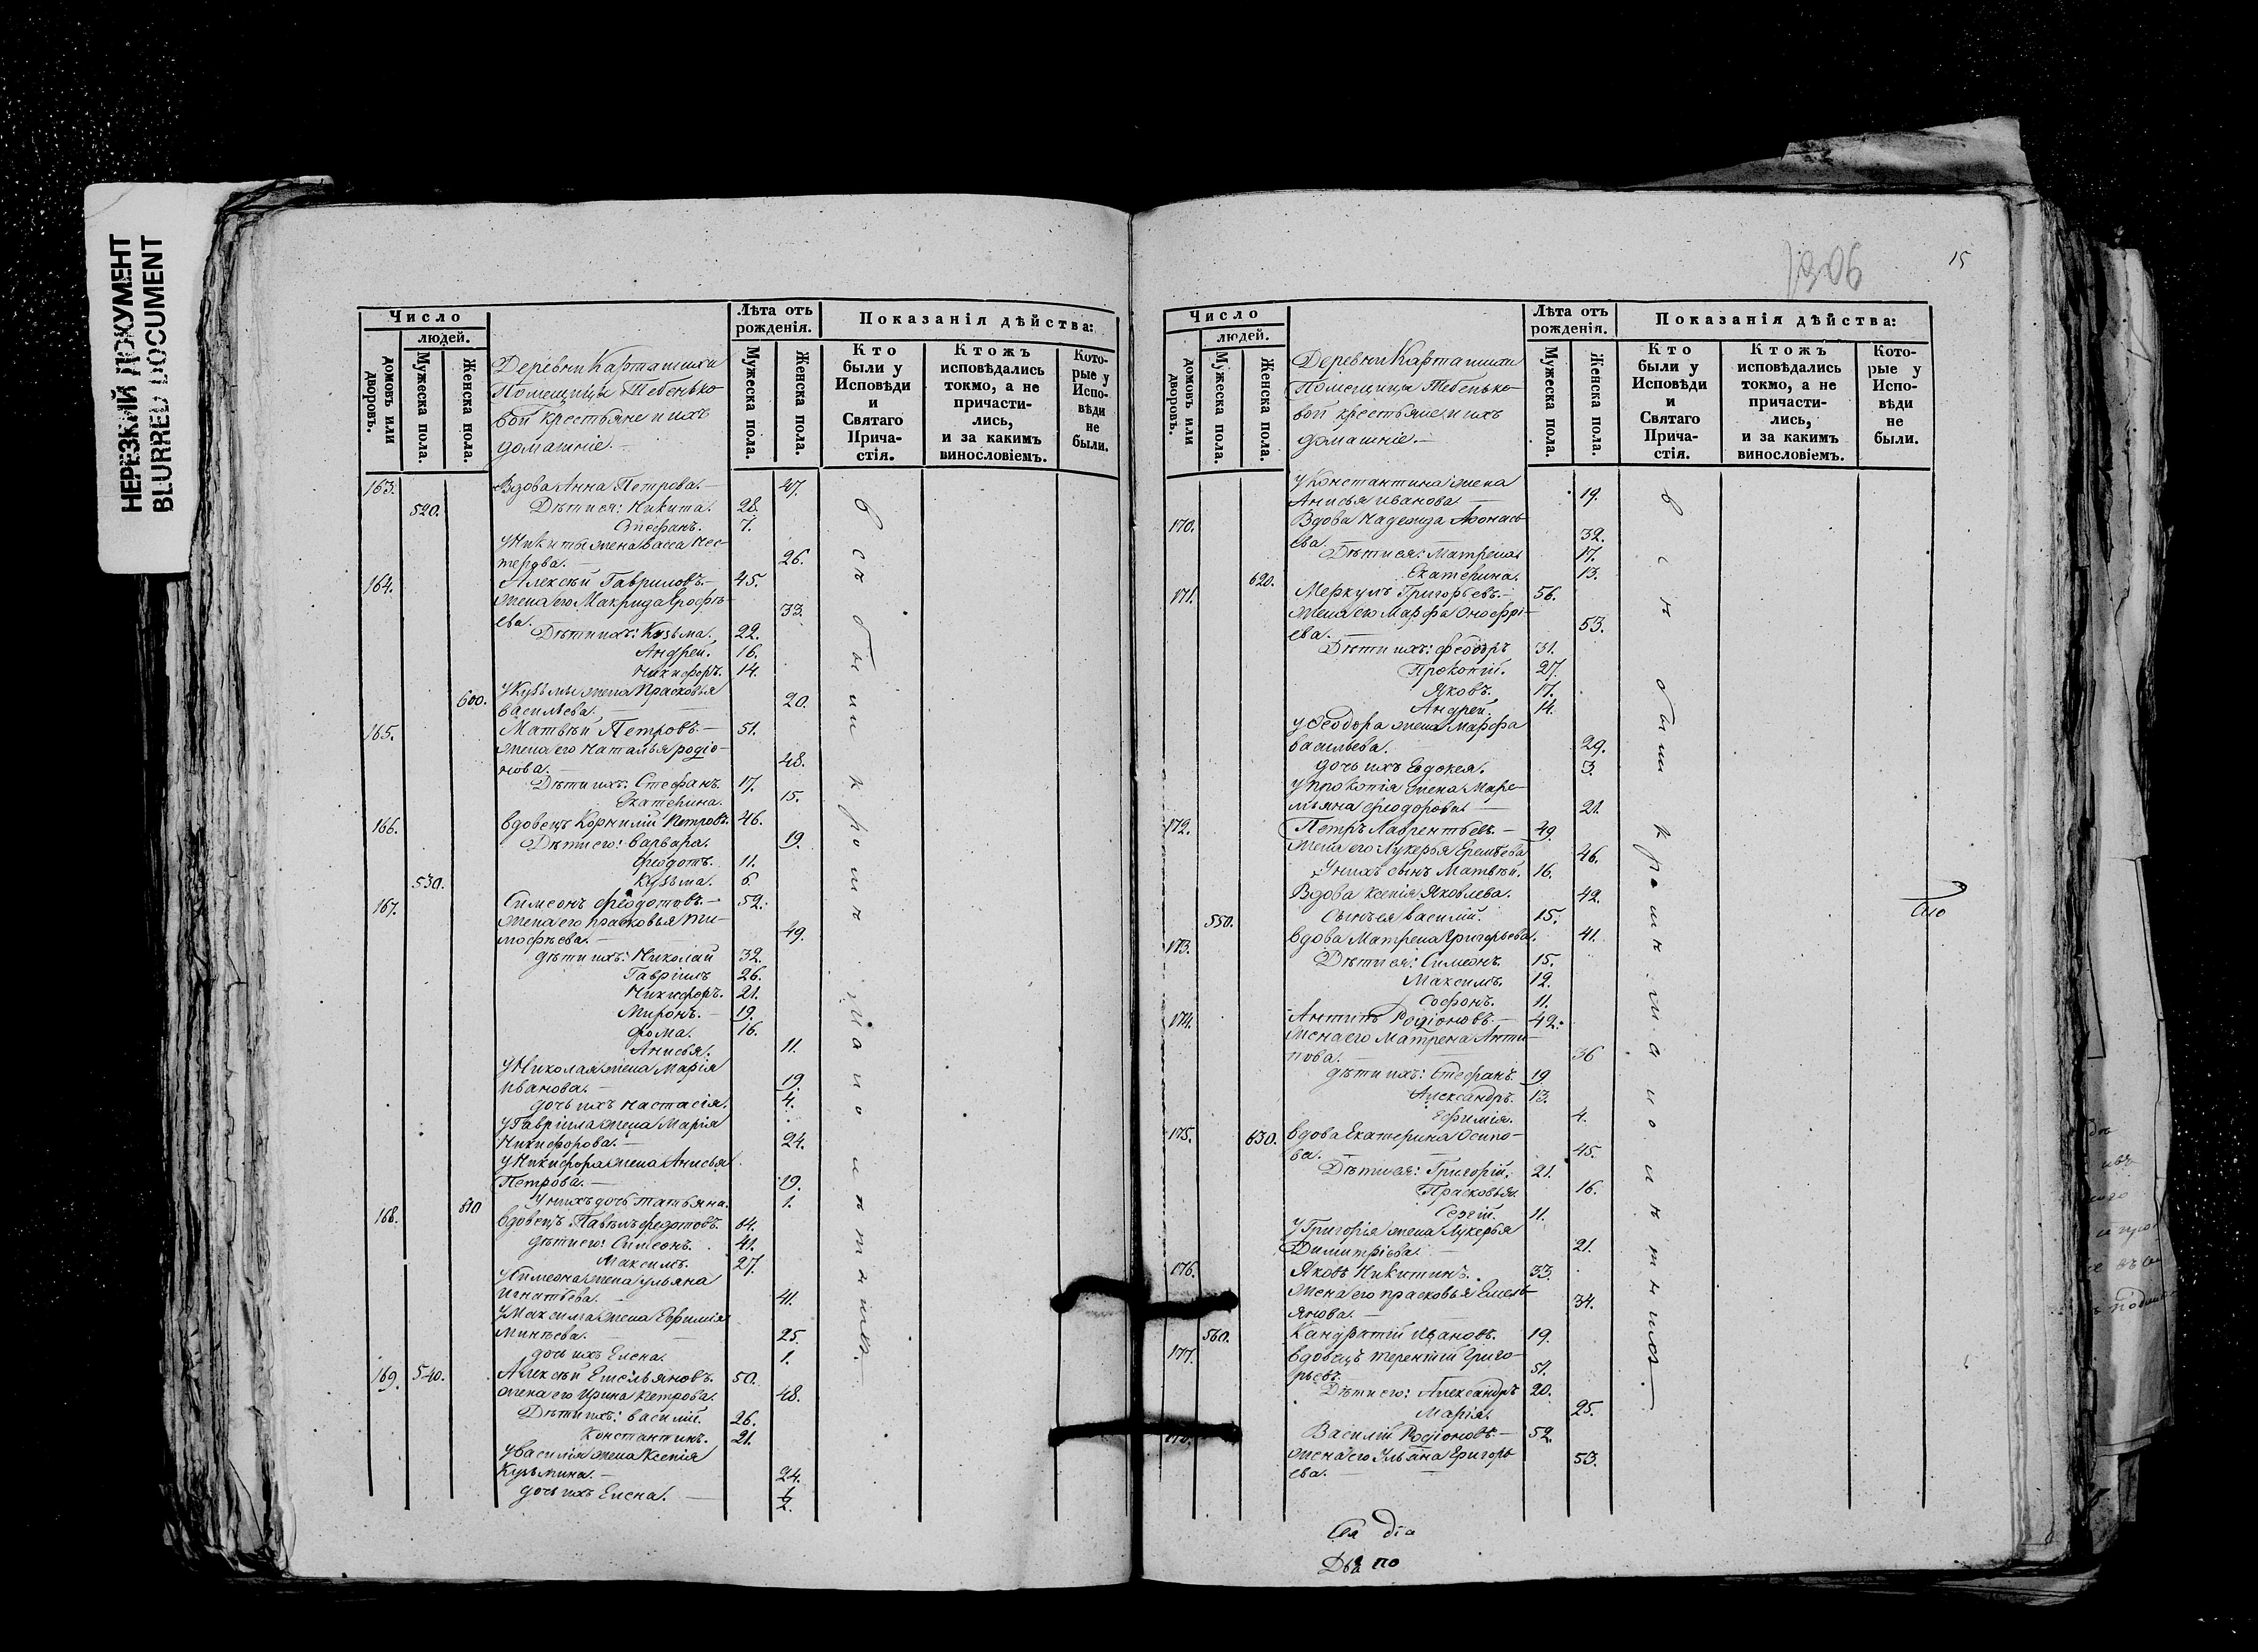 НЕРЕЗКИЙ ДОКУМЕНТ
BLURRED DOCUMENT
Число
людей.
домовъ или дворовъ.
Мужеска пола.
Женска пола.
Деревни Карташиха
Помещицы Тебенько
вой крестьяне и ихъ
домашніе.
Лѣта отъ рожденія.
Мужеска пола.
Женска пола.
Показанія дѣйства:
Кто были у Исповѣди и Святаго Прича-стія.
Ктожъ исповѣдались токмо, а не причасти-лись, и за какимъ винословіемъ.
Кото-рые у Испо-вѣди не были.
163. Вдова Анна Петрова. 47.
520. Дѣти ея: Никита. 28.
Стефанъ. 7.
У Никиты жена Васса Нес-
терова. 26.
164. Алексѣй Гавриловъ. 45.
жена его Макрида Ерофѣ-
ева. 33.
Дѣти ихъ: Кузьма. 22.
Андрей. 16.
Никифоръ. 14.
У Кузьмы жена Прасковья
600. Васильева. 20.
165. Матвѣй Петровъ. 51.
жена его Наталья Родіо-
нова. 48.
Дѣти ихъ: Стефанъ. 17.
Екатерина. 15.
166. Вдовецъ Корнилій Петровъ. 46.
Дѣти его: Варвара. 19.
Феодотъ. 11.
530. Кузьма. 6.
167. Симеонъ Феодотовъ. 52.
жена его Прасковья Ти-
мофѣева. 49.
Дѣти ихъ: Николай 32.
Гавріилъ 26.
Никифоръ. 21.
Миронъ. 19.
Фома. 16.
Анисья. 11.
У Николая жена Марія
Иванова. 19.
дочь ихъ Настасія. 4.
У Гавріила жена Марія
Никифорова. 24.
У Никифора жена Анисья
Петрова. 19.
610 У нихъ дочь Татьяна. 1.
168. Вдовецъ Павелъ Федотовъ. 64.
Дѣти его: Симеонъ. 41.
Максимъ. 27.
У Симеона жена Ульяна
Игнатьева. 41.
У Максима жена Евфимія
Минѣева. 25.
дочь ихъ Елена. 1.
169. 540. Алексѣй Емельяновъ. 50.
жена его Ирина Петрова. 48.
Дѣти ихъ: Василій. 26.
Константинъ. 21.
У Василія жена Ксенія
Кузьмина. 24.
дочь ихъ Елена. 1/2.
всѣ были кромѣ малолѣтнихъ.
1306
15
Число
людей.
домовъ или дворовъ.
Мужеска пола.
Женска пола.
Деревни Карташихи
Помещицы Тебенько-
вой крестьяне и ихъ
домашніе.
Лѣта отъ рожденія.
Мужеска пола.
Женска пола.
Показанія дѣйства:
Кто были у Исповѣди и Святаго Прича-стія.
Ктожъ исповѣдались токмо, а не причасти-лись, и за какимъ винословіемъ.
Кото-рые у Испо-вѣди не были.
У Константина жена
Анисья Иванова. 19.
170. Вдова Надежда Афонась
ева. 32.
Дѣти ея: Матрена 17.
620. Екатерина. 13.
171. Меркулъ Григорьевъ. 56.
жена его Марфа Онофрі-
ева. 53.
Дѣти ихъ: Феодоръ 31.
Прокопій. 27.
Яковъ. 17.
Андрей. 14.
У Феодора жена Марфа
Васильева. 29.
дочь ихъ Евдокея. 3.
У Прокопія жена Маре-
мьяна Феодорова. 21.
172. Петръ Лаврентьевъ. 49.
жена его Лукерья Еремѣева 46.
У нихъ сынъ Матвѣй. 16.
Вдова Ксенія Яковлева. 42.
550. Сынъ ея Василій. 15.
173. Вдова Матрена Григорьева. 41.
Дѣти ея: Симеонъ. 15.
Максимъ. 12.
Софонъ. 11.
174. Антипъ Родіоновъ. 42.
жена его Матрена Анти-
пова. 36
дѣти ихъ: Стефанъ. 19.
Александръ. 13.
Ефимія. 4.
175. 630. Вдова Екатерина Осипо-
ва. 45.
Дѣти ея: Григорій. 21.
Прасковья 16.
Сергій. 11.
У Григорія жена Лукерья
Димитріева. 21.
176. Яковъ Никитинъ. 33.
жена его Прасковья Емель
янова. 34.
560. Кандратій Ивановъ. 19.
177. Вдовецъ Терентій Григо-
рьевъ. 51.
Дѣти его: Александръ 20.
Марія. 25.
Василій Родіоновъ. 52.
жена его Ульяна Григорь
ева. 53.
всѣ были кромѣ малолѣтнихъ.
діа
Два по